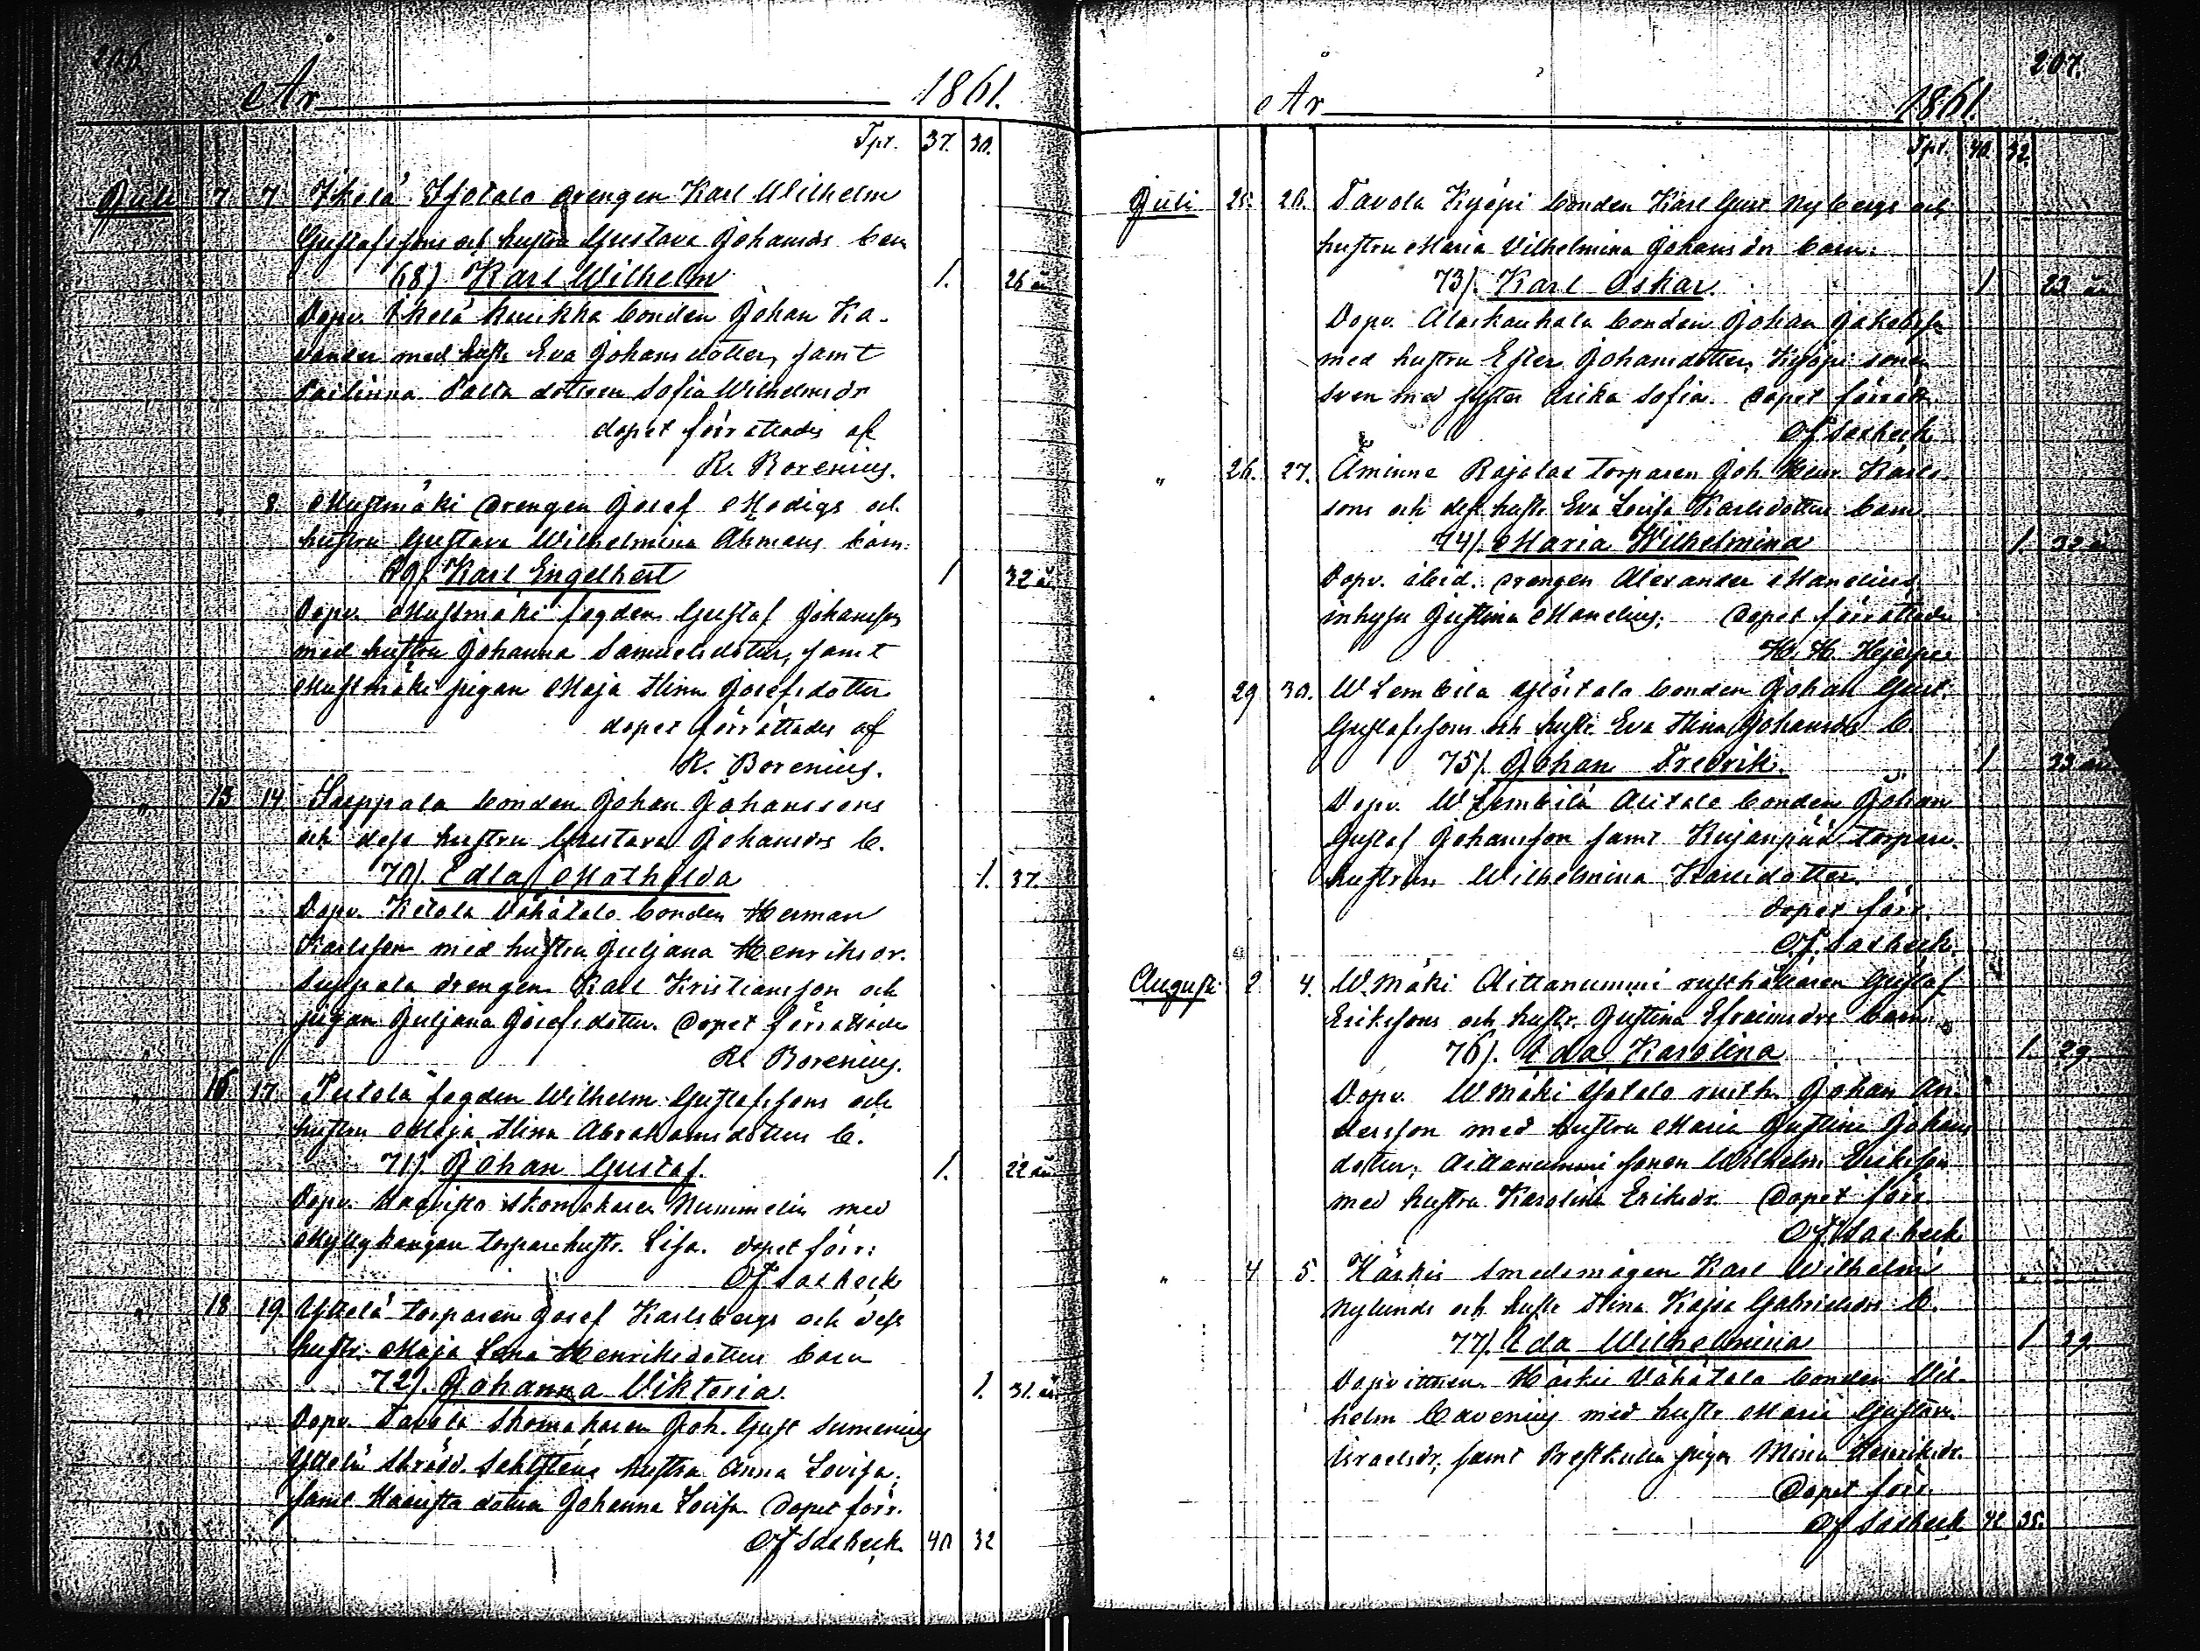 206.
År 1861.
Tpt. 37. 30.
Juli 7. 7. Ikelä Isotalo drengen Karl Wilhelm
Gustafssons och hustru Gustava Johansdrs barn
68). Karl Wilhelm 1. 26 år
Dopv. Ikelä Kuukka bonden Johan Ka-
vander med hustr. Eva Johansdotter, samt
Palta dottren Sofia Wilhelmsdr
dopet förrättades af
R. Borenius.
" " 8. Mustmäki drengen Josef Modigs och
hustru Gustava Wilhelmina Åhmans barn.
69). Karl Engelbert 1 32 år
Dopv. Mustmäki fogden Gustaf Johansson
med hustru Johanna Samuelsdotter, samt
Mustmäki pigan Maja Stina Josefsdotter
dopet förrättades af
R. Borenius.
" 13 14 Seppala bonden Johan Johanssons
och dess hustru Gustava Johansdrs b.
70). Edla Mathilda 1. 37.
Dopv. Ketola Vähätalo bonden Herman
Karlsson med hustru Juljana Henriksdr.
Seppala drengen Karl Kristiansson och
pigan Juljana Josefsdotter. Dopet förrättade
R. Borenius.
" 16 17. fogden Wilhelm Gustafssons och
hustru Maja Stina Abrahamsdotters b.
71). Johan Gustaf. 1. 22 år
Dopv. skomakaren Nummelin med
Myllykangan torparehustr. Lisa. dopet förr:
Of Sasheck
" 18 19. Yttelä torparen Josef Karlsbergs och dess
hustr. Maja Lena Henriksdotters barn
72). Johanna Viktoria. 1. 31. år
Dopv. Tavola skomakaren Joh. Gust Sumenius
Yttelä Skrädd. hustru Anna Lovisa,
samt dotren Johanna Lovisa. Dopet förr.
Of Sasheck 40 32
207.
År 1861.
Tpt. 40. 32.
Juli 25. 26. Tavola Kyöpi bonden Karl Gust. Nybergs och
hustru Maria Vilhelmina Johansdrs barn.
73). Karl Oskar. 1 23 år
Dopv. Alaskaukala bonden Johan Jakobsson
med hustru Ester Johansdotter, Kyöpi sonen
Sven med syster Erika Sofia. Dopet förrätt.
Of Sasheck
" 26. 27. Åminne Rajalas torparen Joh. Henr. Karls-
sons och dess hustr. Eva Lovisa Karlsdotters barn
74). Maria Wilhelmina 1. 32 år
Dopv. åbid. drengen Alexander Manelius,
inhyses Justina Manelius. Dopet förrättade
H. H. Hjerpe
" 29 30. W Lembila Yliötalo bonden Johan Gust.
Gustafssons och hustr. Eva Stina Johansdrs b.
75). Johan Fredrik. 1 33 år
Dopv. W Lembilä Alitalo bonden Johan
Gustaf Johansson samt Kujanpää torpare-
hustrun Wilhelmina Karlsdotter.
dopet förr.
Of Sasheck.
Augusti 2 4. W.Mäki Aittanummi rusthållaren Gustaf
Erikssons och hustr. Justina Efraimsdrs barn
76). Ida Karolina 1. 29
Dopv. W Mäki Yotalo rusth. Johan An-
dersson med hustru Maria Justina Johans
dotter, Aittanummi sonen Wilhelm Eriksson
med hustru Karolina Eriksdr. Dopet förr
Of Sasheck
" 4 5. Härkis Smedsmågen Karl Wilhelm
Nylunds och hustr. Stina Kajsa Gabrielsdrs b.
77). Ida Wilhelmina 1 29.
Dopvittnen. Härkis Vähätalo bonden Wil-
helm Cavenius med hustr. Maria Gustava
Israelsdr, samt Prestkulla pigan Mina Henriksdr.
Dopet förr.
Of Sasheck 42 35.